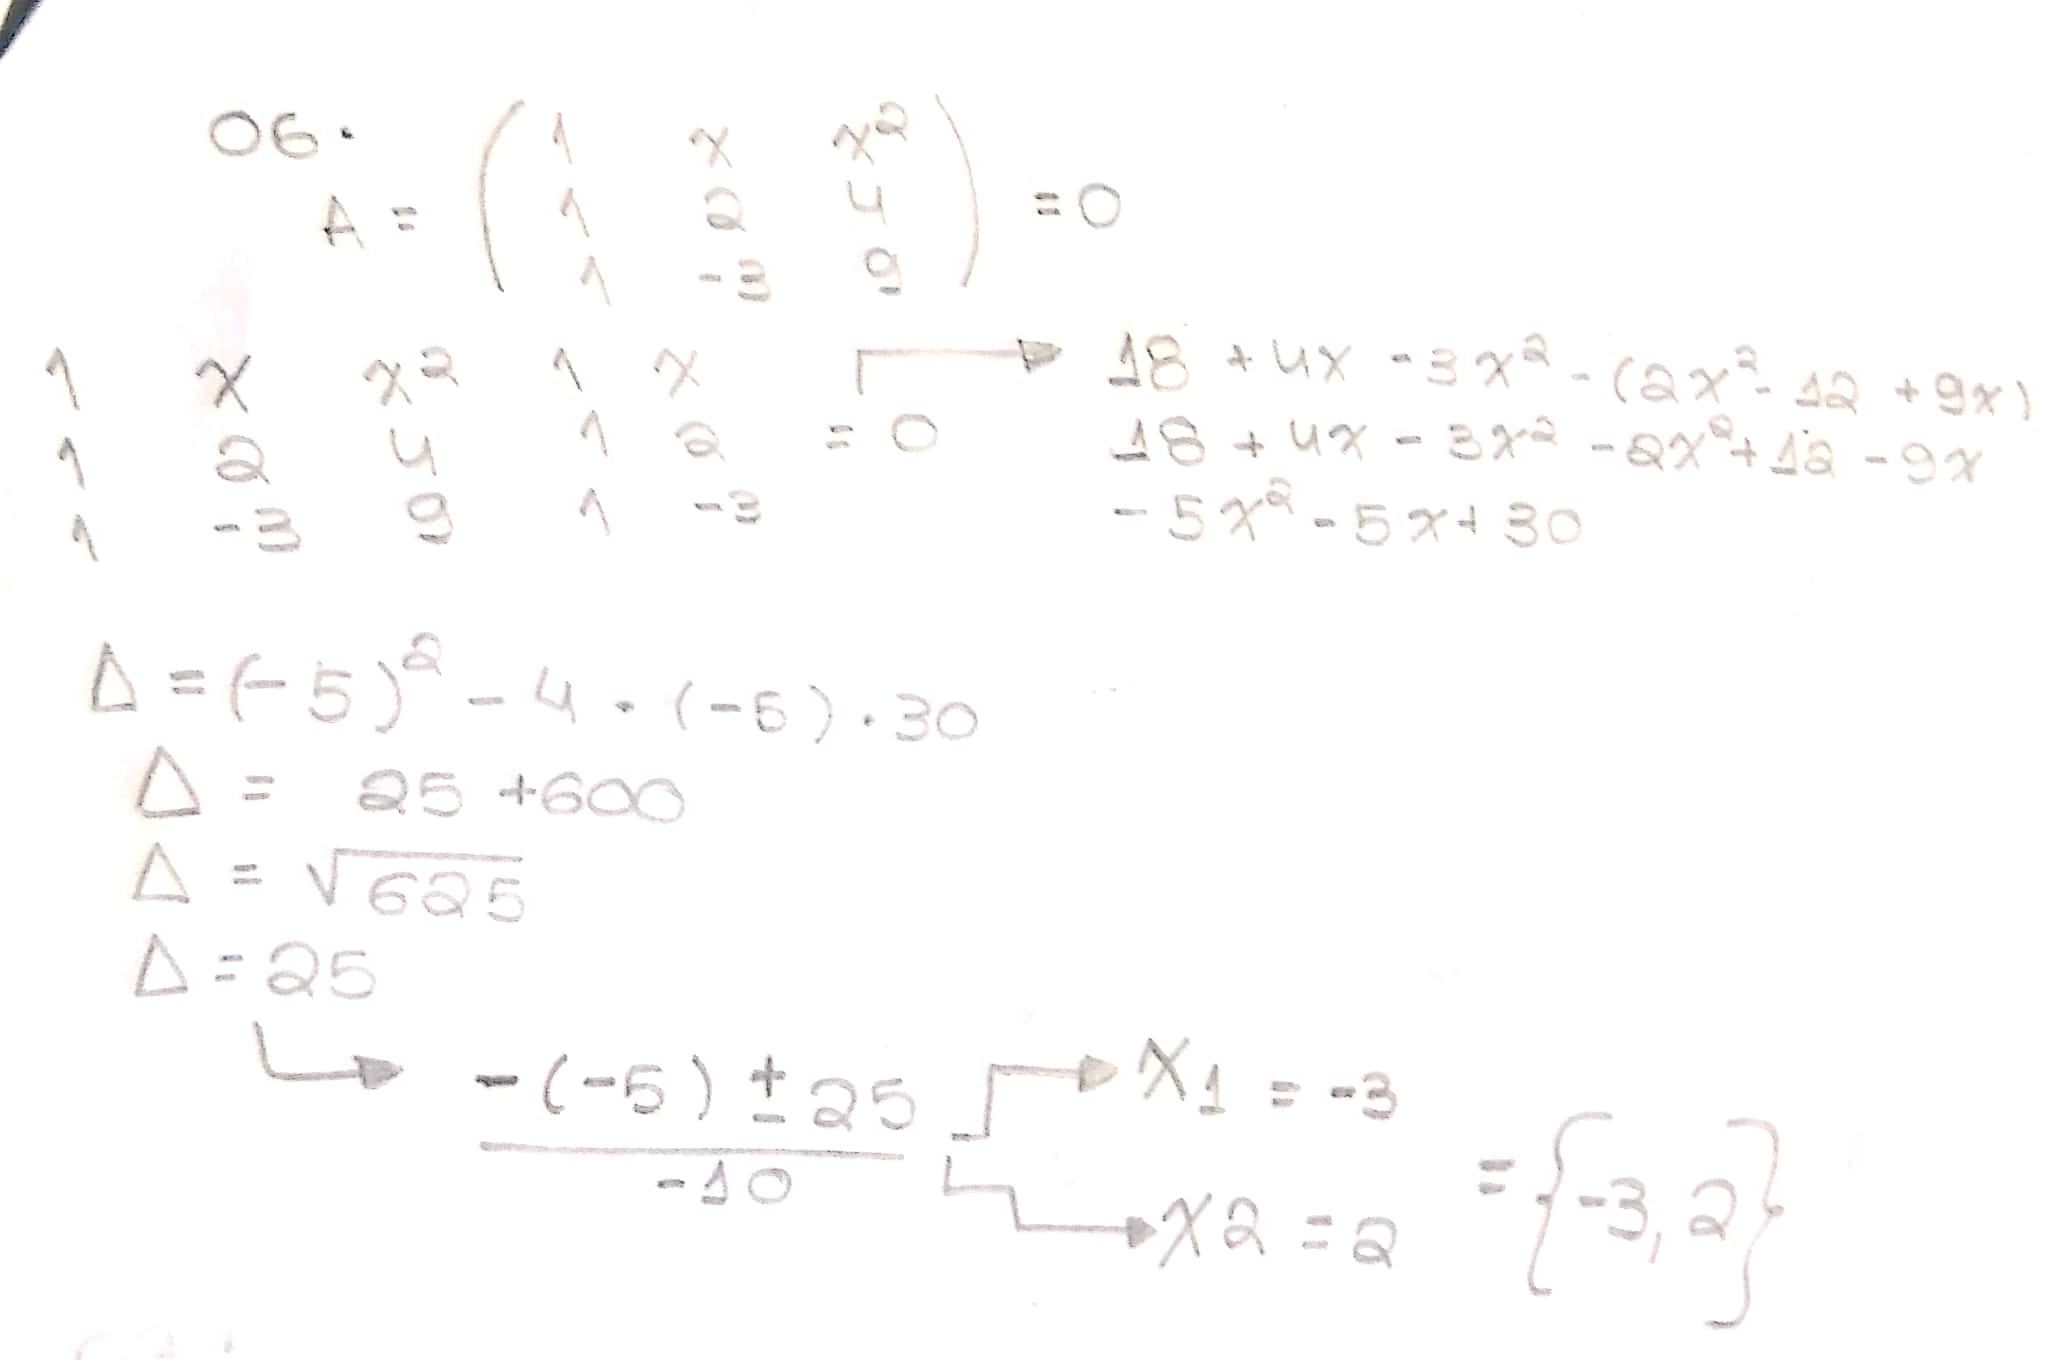 06.
A = ( 1 x x² ) = 0
1 2 4
1 -3 9
1 x x² 1 x
1 2 4 1 2 = 0
1 -3 9 1 -3
18 + 4x - 3x² - (2x² - 12 + 9x)
18 + 4x - 3x² - 2x² + 12 - 9x
- 5x² - 5x + 30
Δ = (-5)² - 4 . (-5) . 30
Δ = 25 + 600
Δ = √625
Δ = 25
-(-5) ± 25
-10
x1 = -3
x2 = 2
= {-3, 2}